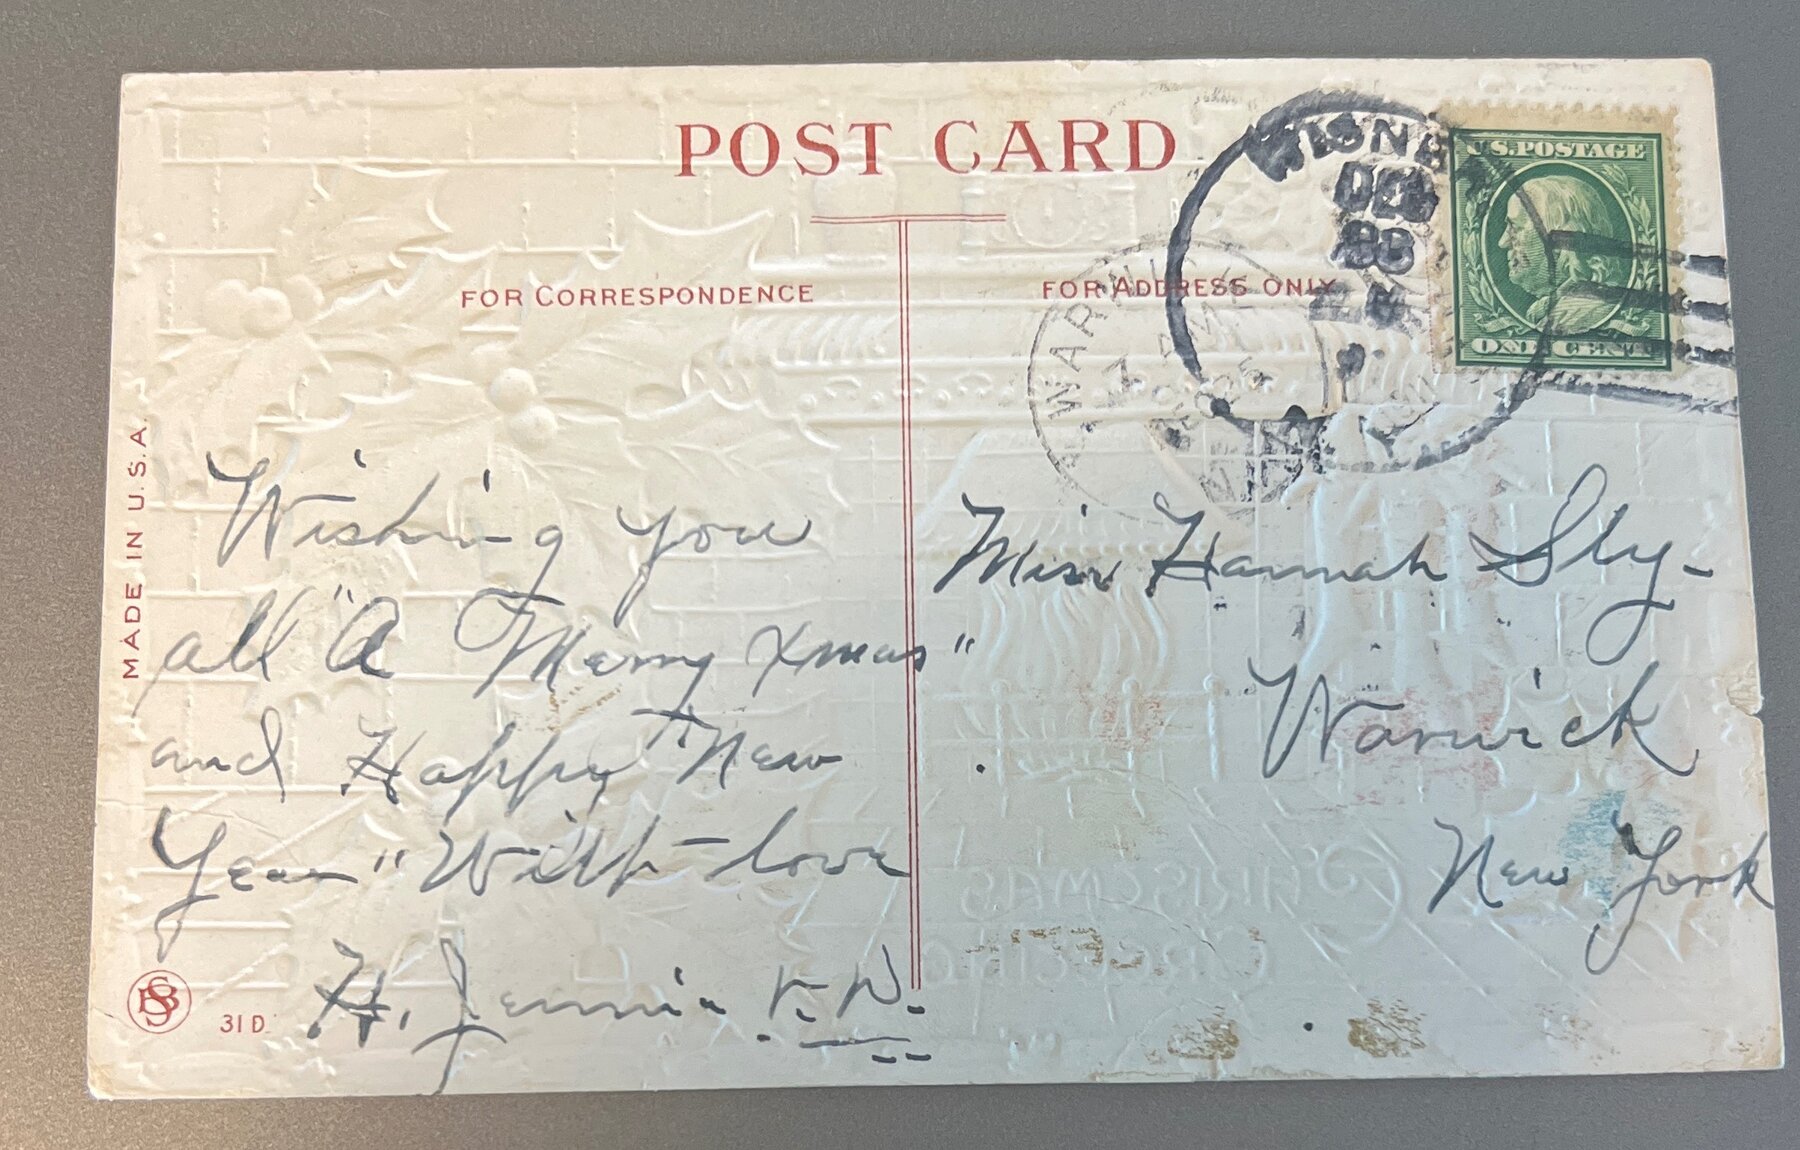 POST CARD
FOR CORRESPONDENCE
FOR ADDRESS ONLY
MADE IN U.S.A.
U.S. POSTAGE
ONE CENT
WISNER
DEC
WARWICK
Wishing you
all "A Merry Xmas"
and Happy "New
Year" With love
H. Jennie V. D.
Miss Hannah Sly-
Warwick
New York
CHRISTMAS
GREETING
31 D